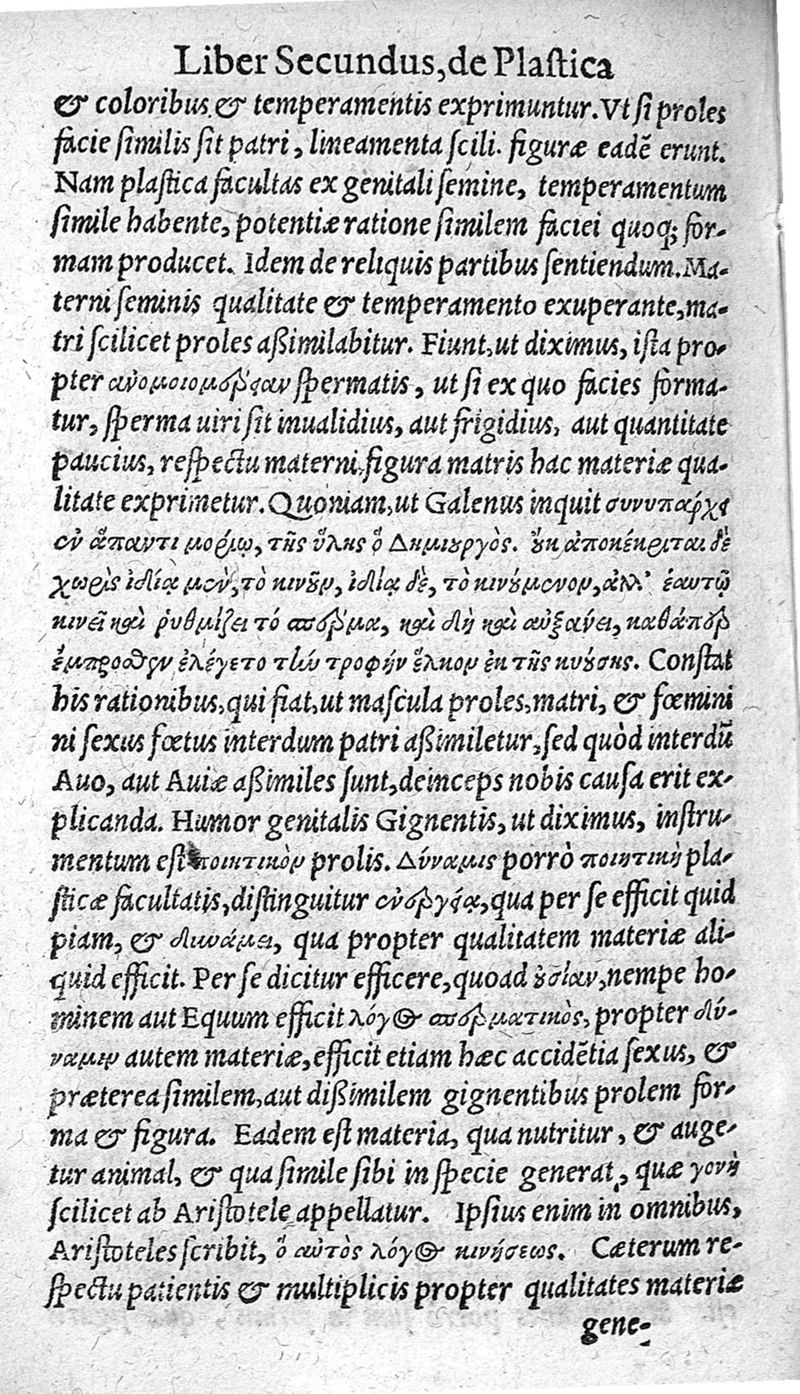 Liber Secundus, de Plaſtica
& coloribus & temperamentis exprimuntur. Vt ſi proles
facie ſimilis ſit patri, lineamenta ſcili. figuræ eadē erunt.
Nam plaſtica facultas ex genitali ſemine, temperamentum
ſimile habente, potentiæ ratione ſimilem faciei quoq; for-
mam producet. Idem de reliquis partibus ſentiendum. Ma-
terni ſeminis qualitate & temperamento exuperante, ma-
tri ſcilicet proles aßimilabitur. Fiunt, ut diximus, iſta pro-
pter ἀνομοιομέρειαν ſpermatis, ut ſi ex quo facies forma-
tur, ſperma uiri ſit inualidius, aut frigidius, aut quantitate
paucius, reſpectu materni, figura matris hac materiæ qua-
litate exprimetur. Quoniam, ut Galenus inquit συνυπαρχει
ἐν ἅπαντι μορίῳ, τῆς ὕλης ὁ Δημιουργὸς. οὐκ ἀποκέκριται δὲ
χωρὶς ἰδίᾳ μὲν, τὸ κινοῦν, ἰδίᾳ δὲ, τὸ κινούμενον, ἀλλ' ἑαυτῷ
κινεῖ καὶ ῥυθμίζει τό σπέρμα, καὶ δὴ καὶ αὐξανει, καθάπερ
ἔμπροσθεν ἐλέγετο τὴν τροφὴν ἕλκον ἐκ τῆς κυούσης. Conſtat
his rationibus, qui fiat, ut maſcula proles, matri, & fœmini
ni ſexus fœtus interdum patri aßimiletur, ſed quòd interdū
Auo, aut Auiæ aßimiles ſunt, deinceps nobis cauſa erit ex-
plicanda. Humor genitalis Gignentis, ut diximus, inſtru-
mentum eſt ποιητικὸν prolis. Δύναμις porrò ποιητικὴ pla-
ſticæ facultatis, diſtinguitur ἐνεργείᾳ, qua per ſe efficit quid
piam, & δυνάμει, qua propter qualitatem materiæ ali-
quid efficit. Per ſe dicitur efficere, quoad οὐσίαν, nempe ho-
minem aut Equum efficit λόγος σπερματικὸς, propter δύ-
ναμιν autem materiæ, efficit etiam hæc accidētia ſexus, &
præterea ſimilem, aut dißimilem gignentibus prolem for-
ma & figura. Eadem eſt materia, qua nutritur, & auge-
tur animal, & qua ſimile ſibi in ſpecie generat, quæ γονὴ
ſcilicet ab Ariſtotele appellatur. Ipſius enim in omnibus,
Ariſtoteles ſcribit, ὁ αὐτὸς λόγος κινήσεως. Cæterum re-
ſpectu patientis & multiplicis propter qualitates materiæ
gene-